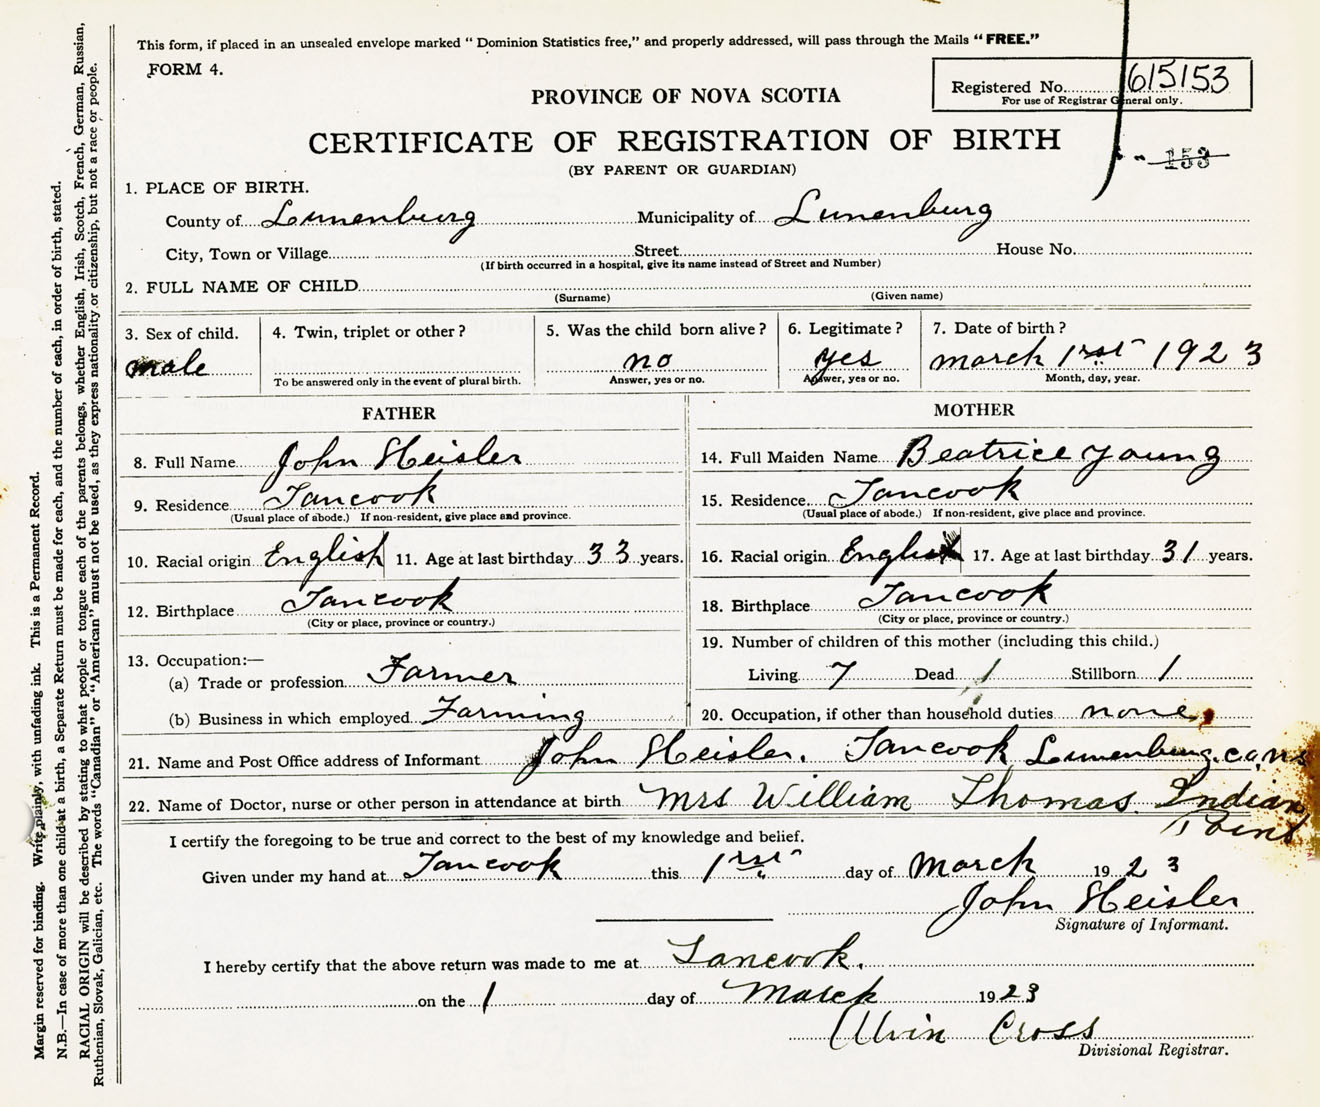 This form, if placed in an unsealed envelope marked “ Dominion Statistics free,” and properly addressed, will pass through the Mails “ FREE.”
FORM 4.
Registered No. 615153
For use of Registrar General only.
PROVINCE OF NOVA SCOTIA
CERTIFICATE OF REGISTRATION OF BIRTH
153
(BY PARENT OR GUARDIAN)
1. PLACE OF BIRTH.
County of Lunenburg Municipality of Lunenburg
City, Town or Village Street House No.
(If birth occurred in a hospital, give its name instead of Street and Number)
2. FULL NAME OF CHILD
(Surname) (Given name)
3. Sex of child. male
4. Twin, triplet or other ?
To be answered only in the event of plural birth.
5. Was the child born alive ? no
Answer, yes or no.
6. Legitimate ? yes
Answer, yes or no.
7. Date of birth ?
march 1rst 1923
Month, day, year.
FATHER
8. Full Name John Heisler
9. Residence Tancook
(Usual place of abode.) If non-resident, give place and province.
10. Racial origin English 11. Age at last birthday 33 years.
12. Birthplace Tancook
(City or place, province or country.)
13. Occupation:—
(a) Trade or profession Farmer
(b) Business in which employed Farming
MOTHER
14. Full Maiden Name Beatrice Young
15. Residence Tancook
(Usual place of abode.) If non-resident, give place and province.
16. Racial origin English 17. Age at last birthday 31 years.
18. Birthplace Tancook
(City or place, province or country.)
19. Number of children of this mother (including this child.)
Living 7 Dead 1 Stillborn 1
20. Occupation, if other than household duties none
21. Name and Post Office address of Informant John Heisler. Tancook Lunenburg. co, ns
22. Name of Doctor, nurse or other person in attendance at birth Mrs William Thomas Indian Point
I certify the foregoing to be true and correct to the best of my knowledge and belief.
Given under my hand at Tancook this 1rst day of March 1923
John Heisler
Signature of Informant.
I hereby certify that the above return was made to me at Tancook.
on the 1 day of March 1923
Alvin Cross
Divisional Registrar.
Margin reserved for binding. Write plainly, with unfading ink. This is a Permanent Record.
N.B.—In case of more than one child at a birth, a Separate Return must be made for each, and the number of each, in order of birth, stated.
RACIAL ORIGIN will be described by stating to what people or tongue each of the parents belongs, whether English, Irish, Scotch, French, German, Russian,
Ruthenian, Slovak, Galician, etc. The words “Canadian” or “American” must not be used, as they express nationality or citizenship, but not a race or people.